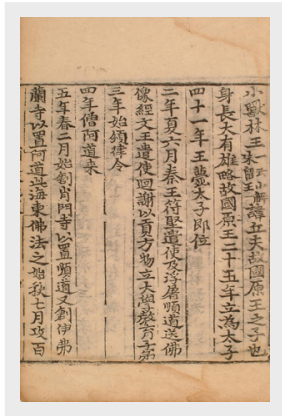 小獸林王一云小解朱留王諱丘夫故國原王之子也
身長大有雄略故國原王二十五年立為太子
四十一年王薨太子即位
二年夏六月秦王符堅遣使及浮屠順道送佛
像經文王遣使迴謝以貢方物立大學敎育子弟
三年始頒律令
四年僧阿道来
五年春二月始創肖門寺以置順道又創伊弗
蘭寺以置阿道此海東佛法之始秋七月攻百